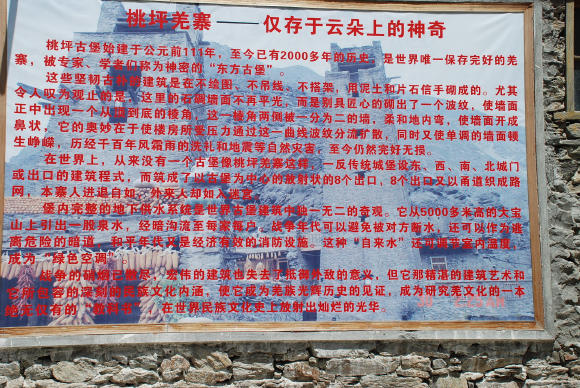 桃坪羌寨——仅存于云朵上的神奇
桃坪古堡始建于公元前111年，至今已有2000多年的历史，是世界唯一保存完好的羌
寨，被专家、学者们称为神密的“东方古堡”。
这些坚韧古的建筑是在不绘图、不吊线、不搭架，用泥土和片石信手砌成的。尤其
令人叹为观止的是，这里的石碉墙面不再平光，而是别具匠心的砌出了一个波纹，使墙面
正中出现一个从到底的棱角，这一棱角两侧被一分为二的墙，柔和地内弯，使墙面开成
鼻状，它的奥妙在于使楼房所受压力通过这一曲线波纹分流扩散，同时又使单调的墙面顿
生峥嵘，历经千百年风霜雨的洗礼和地震等自然灾害，至今仍然完好无损。
在世界上，从来没有一个古堡像桃坪羌寨这样，一反传统城堡设东、西、南、北城门
或出口的建筑程式，而筑成了以古堡为中心的放射状的8个出口，8个出口又以甬道织成路
网，本寨人进退自如，外来人却如入迷宫。
堡内完整的地下供水系统是世界古堡建筑中独一无二的奇观。它从5000多米高的大宝
山上引出一股泉水，经暗沟流至每家每户，战争年代可以避免被对方断水，还可以作为逃
离危险的暗道，和平年代又是经济有效的消防设施。这种“自来水”还可调节室内温度，
成为“绿色空调”。
战争的硝烟已散尽，宏伟的建筑也失去了抵御外敌的意义，但它那精湛的建筑艺术和
它所包容的深刻的民族文化内涵，使它成为羌族光辉历史的见证，成为研究羌文化的一本
绝无仅有的“教科书”，在世界民族文化史上放射出灿烂的光华。